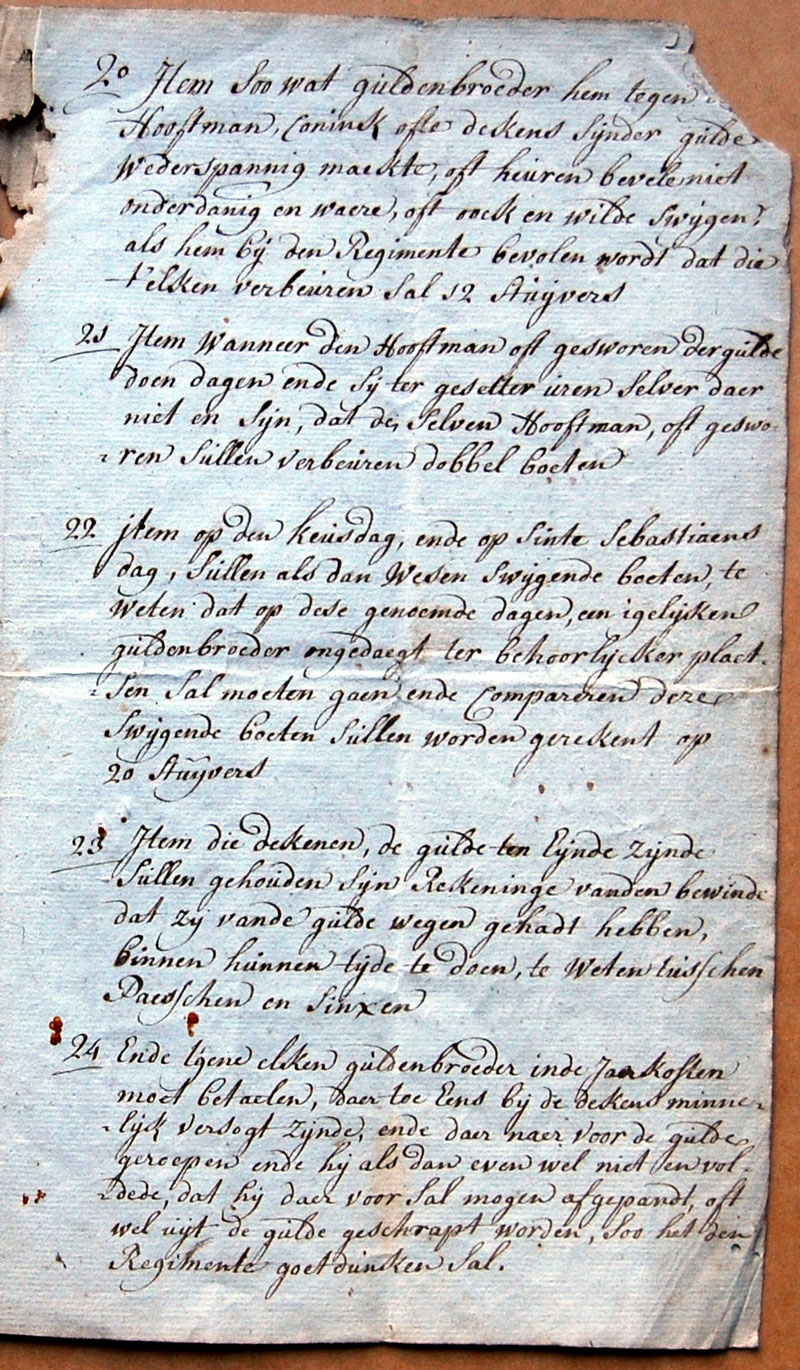 20 Item soo wat güldenbroeder hem tegen
Hooftman, Coninck ofte dekens sijnder gülde
wederspannig maeckte, oft heüren bevele niet
onderdanig en waere, oft oock en wilde swijgen,
als hem bij den Regimente bevolen wordt dat die
t'elken verbeüren sal 12 Stüijvers
21 Item wanneer den Hooftman oft gesworen der gülde
doen dagen ende sij ter gesetter üren selver daer
niet en sijn, dat de selven Hooftman, oft geswo-
-ren süllen verbeüren dobbel boeten
22 item op den keüsdag, ende op Sinte Sebastiaens
dag, süllen als dan wesen swijgende boeten, te
weten dat op dese genoemde dagen, een igelijken
güldenbroeder ongedaegt ter behoorlijcker plaet-
-sen sal moeten gaen ende Compareren deze
swijgende boeten süllen worden gerekent op
20 Stüijvers
23 Item die dekenen, de gülde ten Eijnde zijnde
süllen gehouden sijn Rekeninge vanden bewinde
dat zij vande gülde wegen gehadt hebben,
binnen hünnen tijde te doen, te weten tüsschen
Paesschen en Sinxen
24 Ende tgene elken güldenbroeder inde Jaerkosten
moet betaelen, daer toe Eens bij de dekens minne-
-lijk versogt zijnde, ende daer naer voor de gülde
geroepen ende hij als dan even wel niet en vol-
-dede, dat hij daer voor sal mogen afgepandt, oft
wel üijt de gülde geschrapt worden, soo het den
Regimente goetdünken sal.